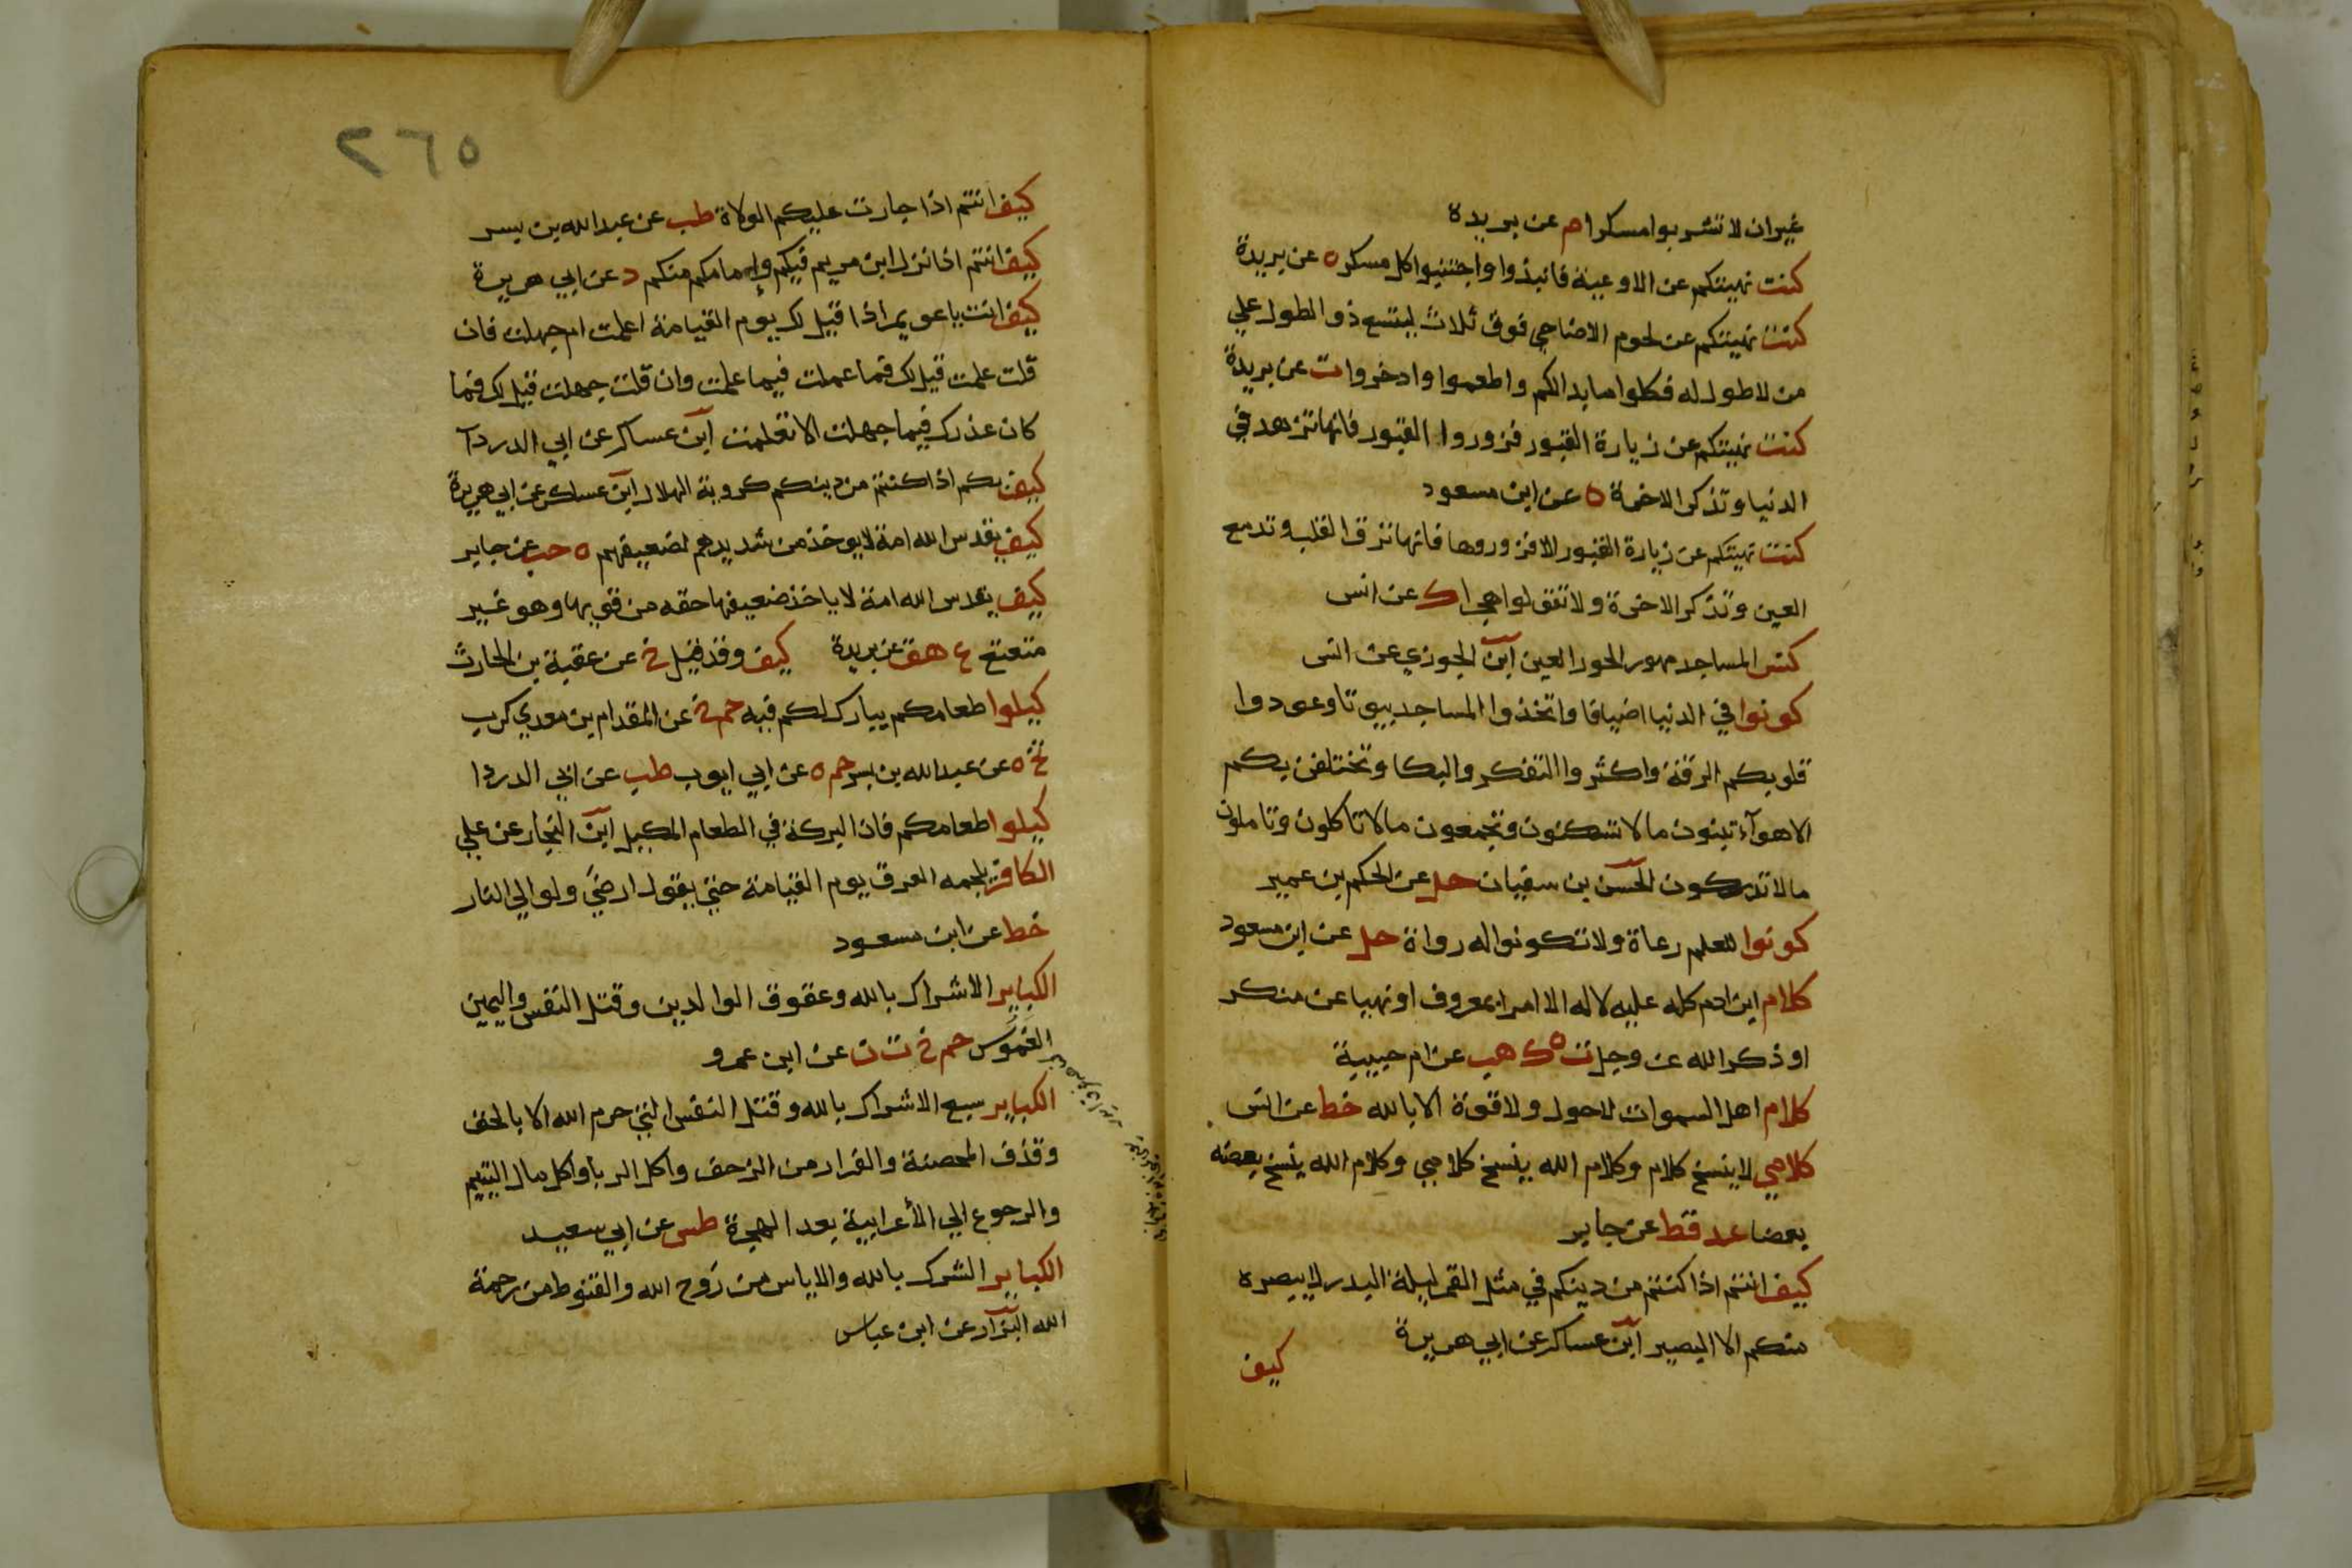 غيران لا تشربوا مسكرا م عن بريدة
كنت نهيتكم عن الاوعية فانبذوا واجتنبوا كل مسكر ه عن بريدة
كنت نهيتكم عن لحوم الاضاحي فوق ثلاث ليتسع ذو الطول علي
من لا طول له فكلوا ما بدا لكم واطعموا وادخروا ت عن بريدة
كنت نهيتكم عن زيارة القبور فزوروا القبور فانها تزهد في
الدنيا وتذكر الاخرة ه عن ابن مسعود
كنت نهيتكم عن زيارة القبور الا فزوروها فانها ترق القلب وتدمع
العين وتذكر الاخرة ولا تقولوا هجرا ك عن انس
كنس المساجد مهور الحور العين ابن الجوزي عن انس
كونوا في الدنيا اضيافا واتخذوا المساجد بيوتا وعودوا
قلوبكم الرقة واكثروا التفكر والبكا وتختلفن بكم
الاهوآء تبنون ما لا تسكنون وتجمعون ما لا تاكلون وتاملون
ما لا تدركون الحسن بن سفيان حل عن الحكم بن عمير
كونوا للعلم رعاة ولا تكونوا له رواة حل عن ابن مسعود
كلام ابن ادم كله عليه لا له الا امرا بمعروف او نهيا عن منكر
او ذكر الله عز وجل ت ه ك هب عن ام حبيبة
كلام اهل السموات لا حول ولا قوة الا بالله خط عن انس
كلامي لا ينسخ كلام وكلام الله ينسخ كلامي وكلام الله ينسخ بعضه
بعضا عد قط عن جابر
كيف انتم اذا كنتم من دينكم في مثل القمر ليلة البدر لا يبصره
منكم الا البصير ابن عساكر عن ابي هريرة
كيف
٢٦٥
كيف انتم اذا جارت عليكم الولاة طب عن عبد الله بن بسر
كيف انتم اذا نزل ابن مريم فيكم وإمامكم منكم د عن ابي هريرة
كيف انت يا عويمر اذا قيل لك يوم القيامة اعلمت ام جهلت فان
قلت علمت قيل لك فما عملت فيما علمت وان قلت جهلت قيل لك فما
كان عذرك فيما جهلت الا تعلمت ابن عساكر عن ابي الدردآ
كيف بكم اذا كنتم من دينكم كروية الهلال ابن عساكر عن ابي هريرة
كيف يقدس الله امة لا يوخذ من شديدهم لضعيفهم ه حب عن جابر
كيف يقدس الله امة لا ياخذ ضعيفها حقه من قويها وهو غير
متعتع ع هق عن بريدة كيف وقد قيل خ عن عقبة بن الحارث
كيلوا طعامكم يبارك لكم فيه حم خ عن المقدام بن معدي كرب
تخ ه عن عبد الله بن بسر حم ه عن ابي ايوب طب عن ابي الدردا
كيلوا طعامكم فان البركة في الطعام المكيل ابن النجار عن علي
الكافر يلجمه العرق يوم القيامة حتي يقول ارحني ولو الي النار
خط عن ابن مسعود
الكباير الاشراك بالله وعقوق الوالدين وقتل النفس واليمين
الغموس حم خ ت ن عن ابن عمرو
الكباير سبع الاشراك بالله وقتل النفس التي حرم الله الا بالحق
وقذف المحصنة والفرار من الزحف واكل الربا واكل مال اليتيم
والرجوع الي الأعرابية بعد الهجرة طس عن ابي سعيد
الكباير الشرك بالله والاياس من رَوح الله والقنوط من رحمة
الله البزار عن ابن عباس